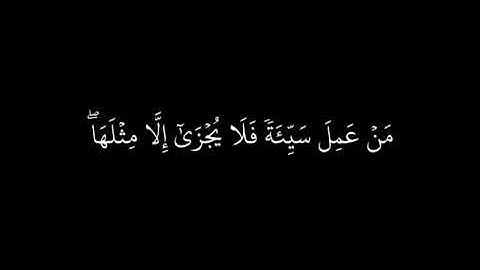 مَنۡ عَمِلَ سَيِّئَةٗ فَلَا يُجۡزَىٰٓ إِلَّا مِثۡلَهَاۖ